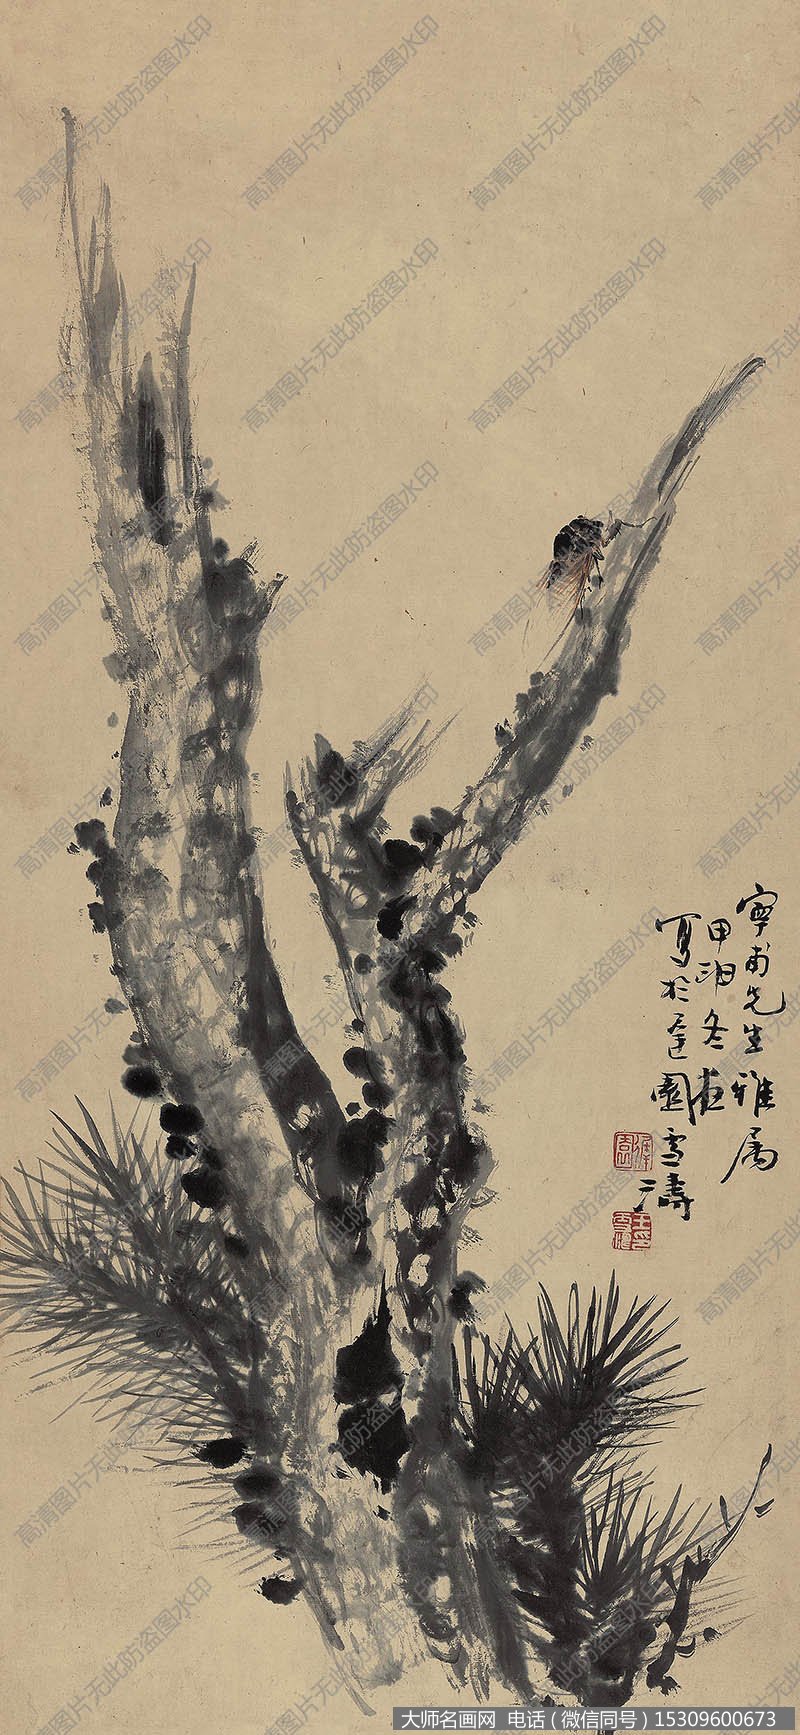 寧甫先生雅属
甲申冬画
写於遅園雪濤
王雪濤印
大师名画网 电话(微信同号)15309600673
高清图片无此防盗图水印